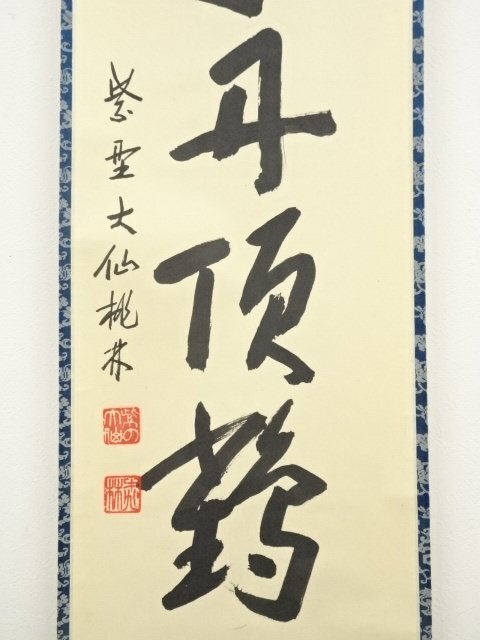 丹頂鶴
紫野大仙桃林